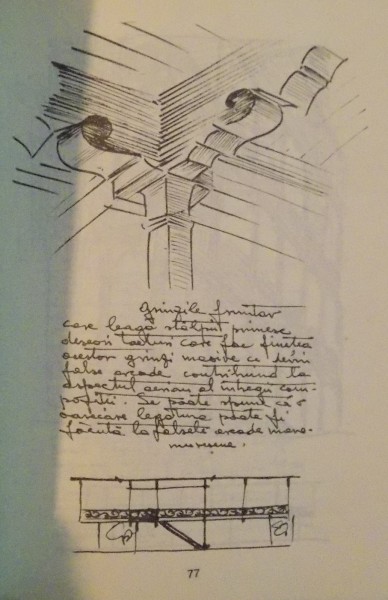 Grinzile fruntar
care leagă stâlpii primesc
deseori tăieturi care fac
acestor grinzi masive cu
false arcade contribuind la
aspectul aerian al întregii com-
poziții. Se poate spune că o
oarecare legătură poate fi
făcută la falsele arcade mara-
mureșene.
77